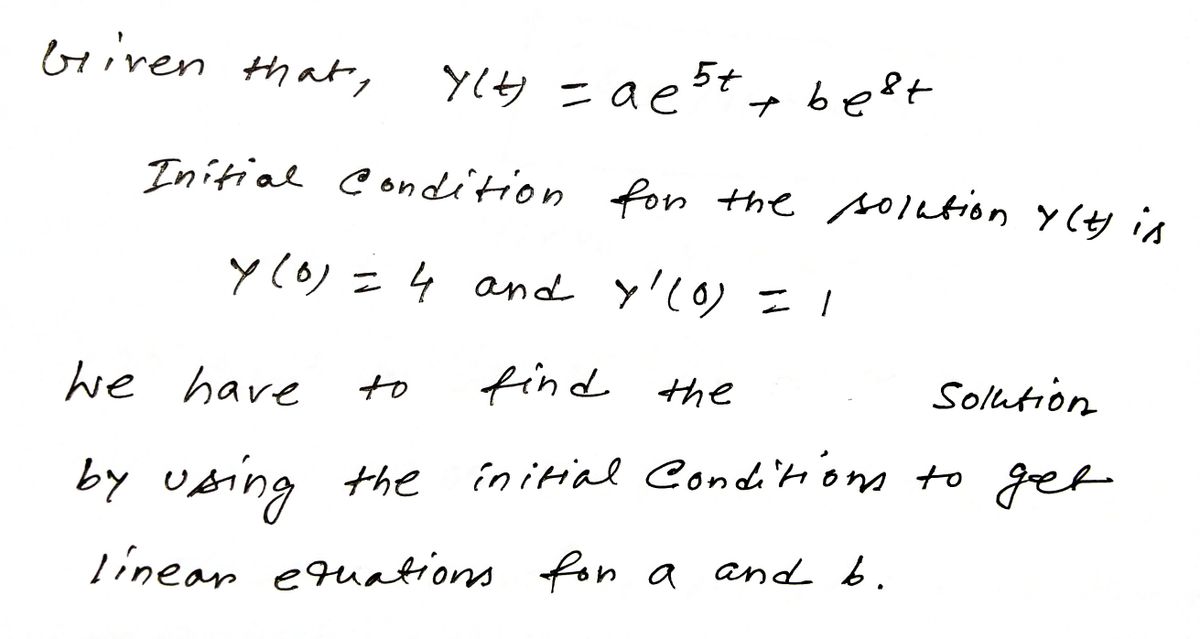 Given that, Y(t) = ae^5t + be^8t
Initial Condition for the solution Y(t) is
Y(0) = 4 and Y'(0) = 1
We have to find the Solution
by using the initial Conditions to get
linear equations for a and b.